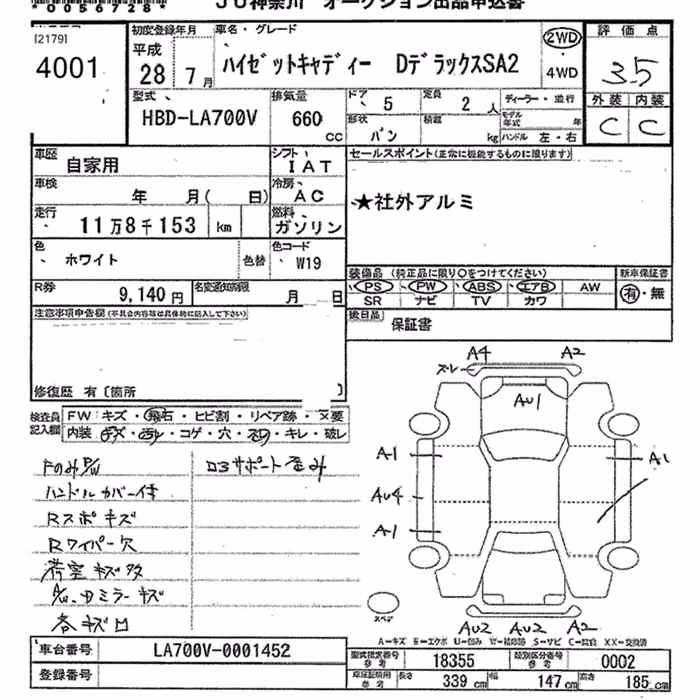 *0056728*
JU神奈川 オークション出品申込書
[2179]
4001
初度登録年月
平成
28年 7月
車名・グレード
ハイゼットキャディー DデラックスSA2
2WD
・
4WD
評価点
3.5
外装 内装
C C
型式
HBD-LA700V
排気量
660
CC
ドア 5
定員 2 人
形状 バン
積載 kg
ディーラー・並行
モデル年式 年
ハンドル 左・右
車歴
自家用
シフト
IAT
車検
年 月( 日)
冷房
AC
走行
11万8千153 km
燃料
ガソリン
色
ホワイト
色替
色コード
W19
R券
9,140 円
名変通知期限
月 日
セールスポイント(正常に機能するものに限ります)
★社外アルミ
装備品 (純正品に限り○をつけてください)
新車保証書
PS PW ABS エアB AW
有・無
SR ナビ TV カワ
後日品
保証書
注意事項申告欄(不具合内容等は具体的に記入して下さい)
修復歴 有〔箇所 〕
検査員記入欄
FW:キズ・飛石・ヒビ割・リペア跡・×要
内装:キズ・・コゲ・穴・・キレ・破レ
Fのみ P/W
ロアサポート歪み
ハンドルカバー付
Rスポキズ
Rワイパー欠
荷室キズ多
ミラーキズ
各キズ凹
A4 A2
ズレ
AU1
A1
A1
AU4
A1
スペア
AU2 AU2 A2
A=キズ E=エクボ U=凹み W=補修跡 S=サビ C=腐食 XX=交換済
車台番号
LA700V-0001452
登録番号
型式指定番号
参考
18355
類別区分番号
参考
0002
車庫証明用
参考
長さ 339 cm
幅 147 cm
高さ 185 cm